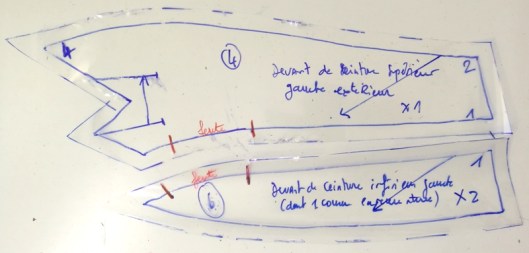 4
④
2
Devant de ceinture supérieur
gauche extérieur
x1
1
fente
fente
1
⑥
Devant de ceinture inférieur gauche
(dont 1 comme
x2